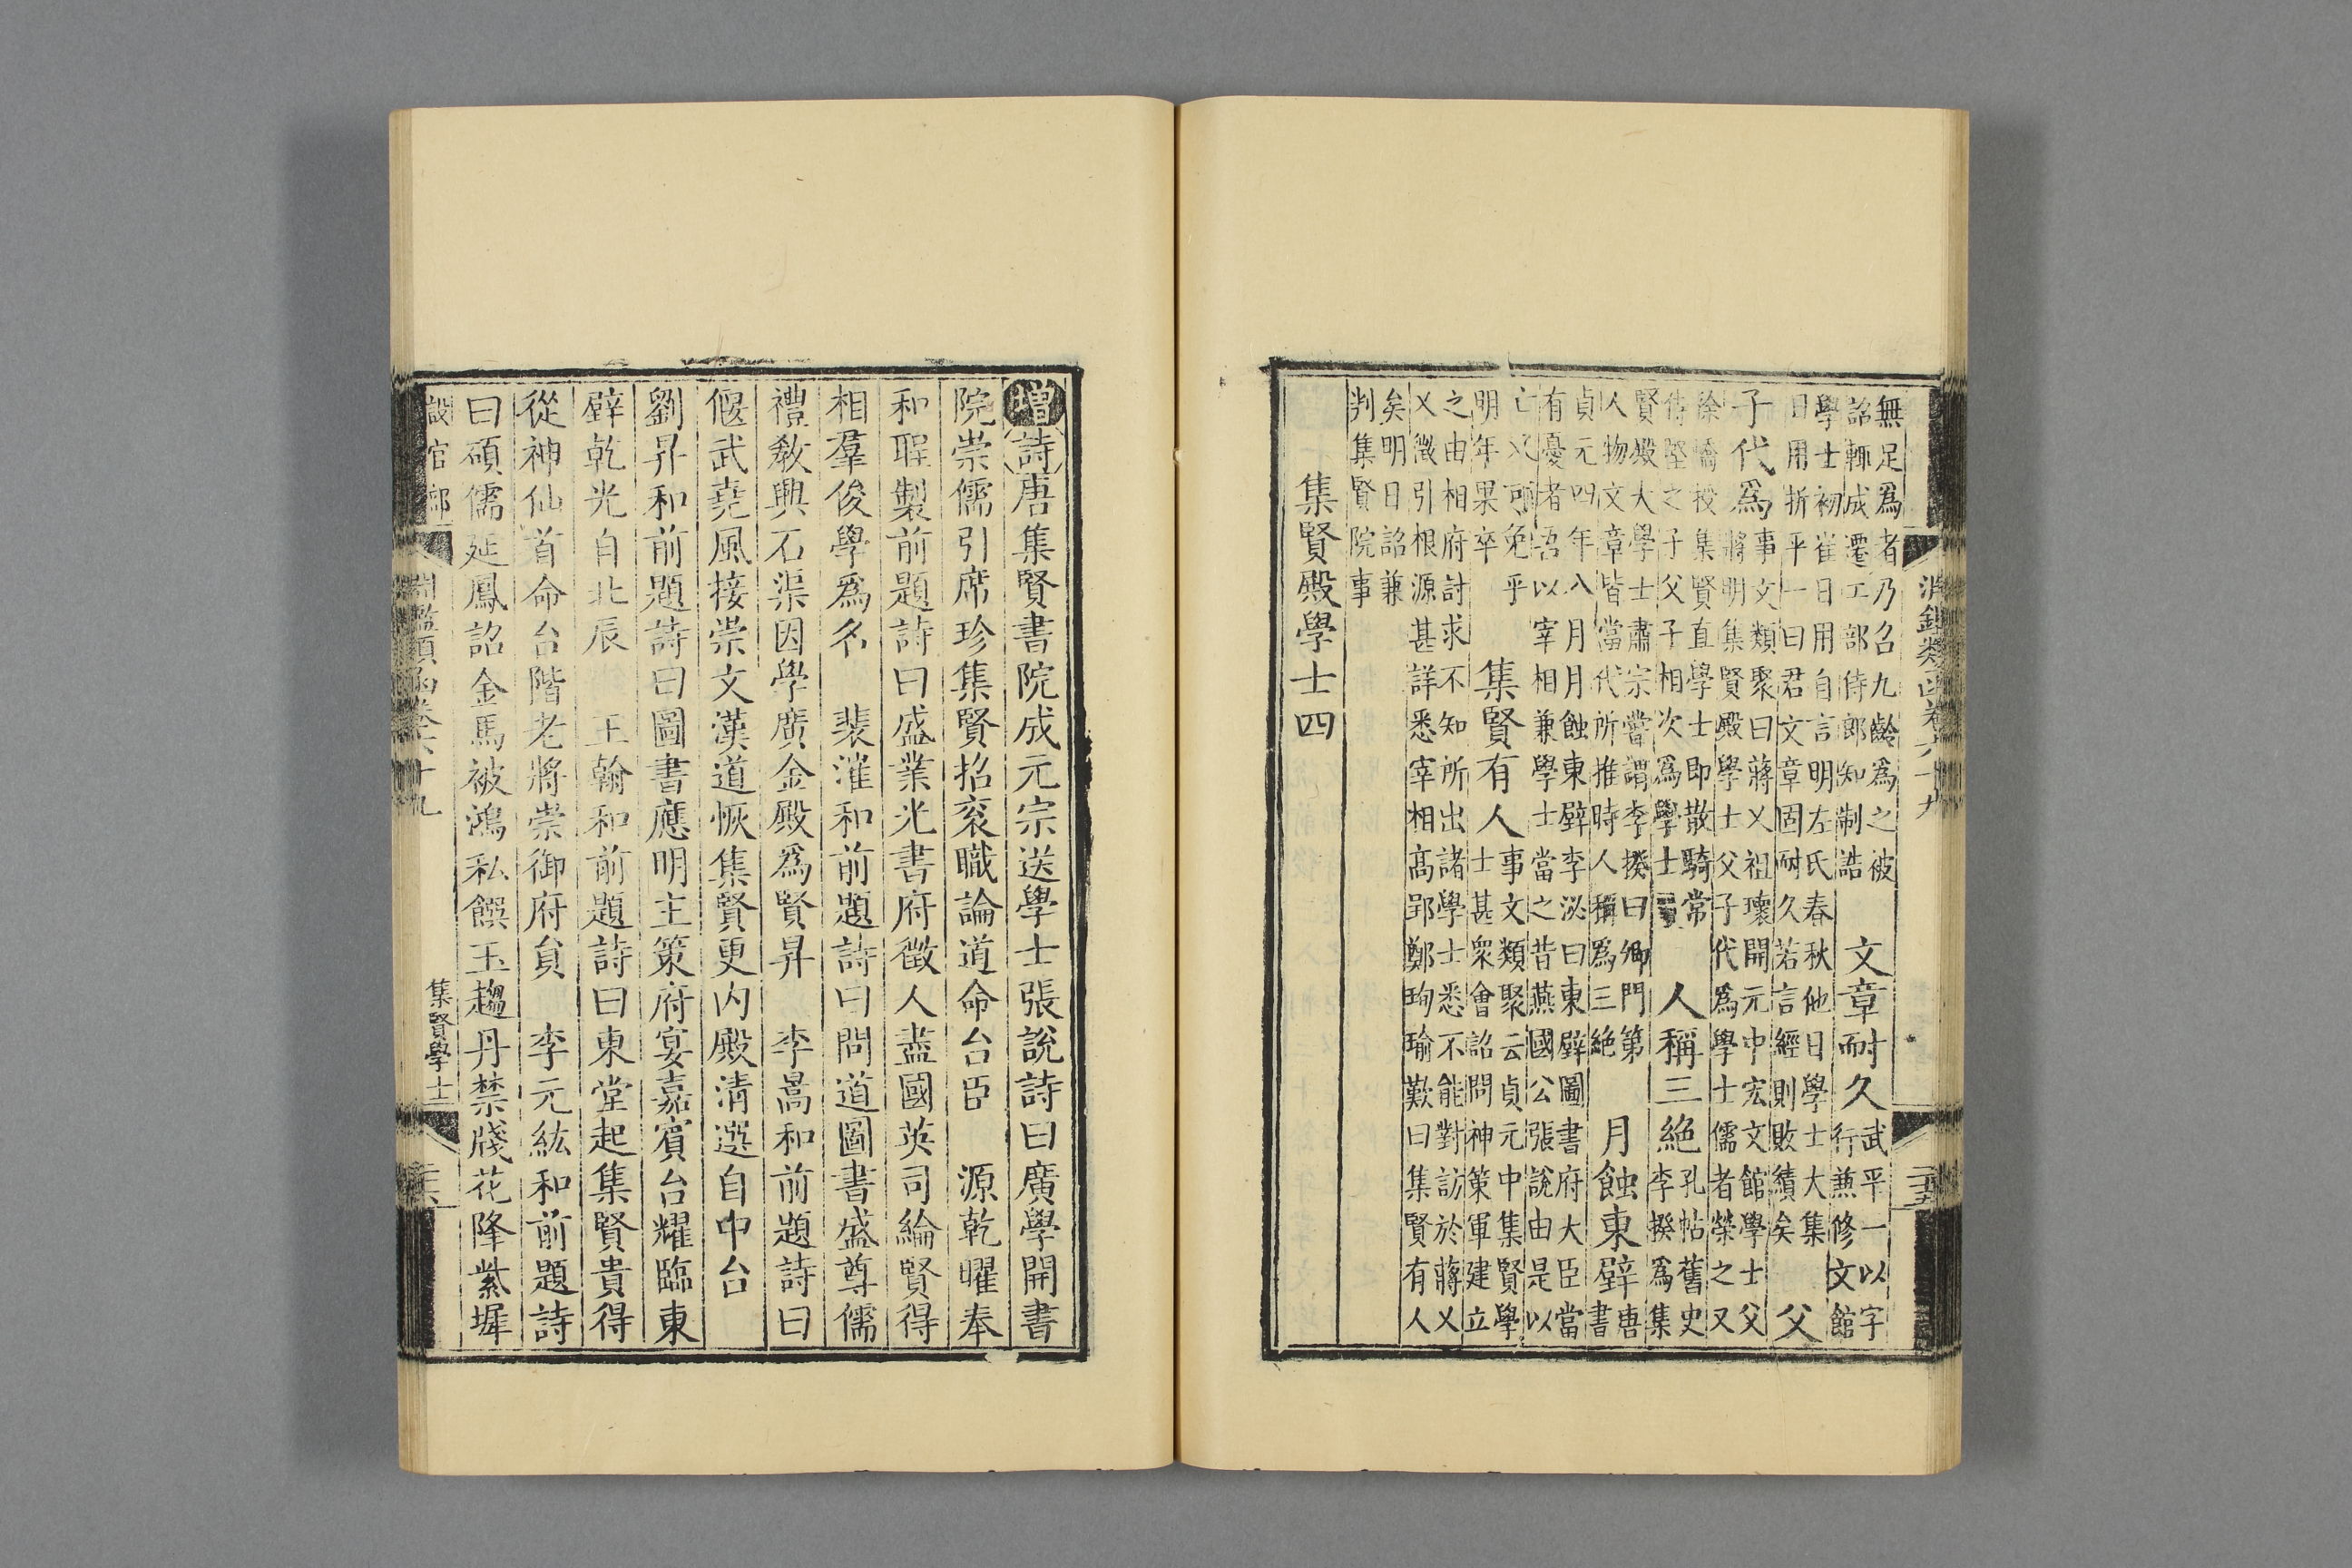 淵鑑類函卷六十九 二十五
無足爲者乃召九齡爲之被
詔輒成遷工部侍郎知制誥
文章耐久
武平一以字
行兼修文館
學士初崔日用自言明左氏春秋他日學士大集
日用折平一曰君文章固耐久若言經則敗績矣
父
子代爲
事文類聚曰蔣乂祖瓌開元中宏文館學士父
將明集賢殿學士父子代爲學士儒者榮之又
徐嶠授集賢直學士即散騎常
侍堅之子父子相次爲學士
人稱三絕
孔帖舊史
李揆爲集
賢殿大學士肅宗嘗謂李揆曰卿門第
人物文章皆當代所推時人稱爲三絕
月蝕東壁
唐
書
貞元四年八月月蝕東壁李泌曰東壁圖書府大臣當
有憂者吾以宰相兼學士當之昔燕國公張說由是以
亡又可免乎
明年果卒
集賢有人
事文類聚云貞元中集賢學
士甚衆會詔問神策軍建立
之由相府討求不知所出諸學士悉不能對訪於蔣乂
乂徵引根源甚詳悉宰相高郢鄭珣瑜歎曰集賢有人
矣明日詔兼
判集賢院事
集賢殿學士四
增詩唐集賢書院成元宗送學士張說詩曰廣學開書
院崇儒引席珍集賢招衮職論道命台臣 源乾曜奉
和聖製前題詩曰盛業光書府徵人盡國英司綸賢得
相羣俊學爲名 裴漼和前題詩曰問道圖書盛尊儒
禮敎興石渠因學廣金殿爲賢昇 李暠和前題詩曰
偃武堯風接崇文漢道恢集賢更內殿清選自中台
劉昇和前題詩曰圖書應明主策府宴嘉賓台耀臨東
壁乾光自北辰 王翰和前題詩曰東堂起集賢貴得
從神仙首命台階老將崇御府員 李元紘和前題詩
曰碩儒延鳳詔金馬被鴻私饌玉趨丹禁牋花降紫墀
設官部 淵鑑類函卷六十九 集賢學士